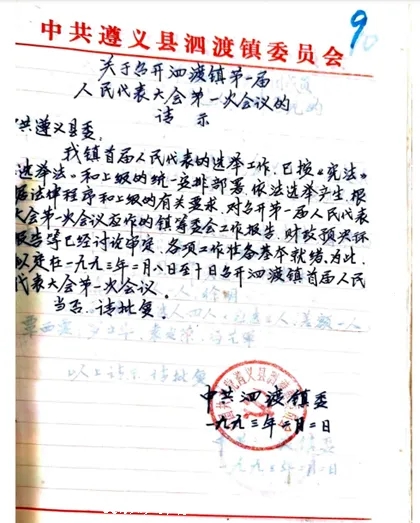 9
中共遵义县泗渡镇委员会
关于召开泗渡镇第一届
人民代表大会第一次会议的
请示
共遵义县委：
我镇首届人民代表的选举工作，已按《宪法》
选举法》和上级的统一安排部署，依法选举产生，根
法律程序和上级的有关要求，对召开第一届人民代表
大会第一次会议应作的镇筹委会工作报告，财政预决标
报告等已经讨论审定，各项工作准备基本就绪，为此，
以定在一九九三年二月八日至十日召开泗渡镇首届人民
代表大会第一次会议。
当否，请批复。
以上请示，请批复
中共泗渡镇委
一九九三年二月二日